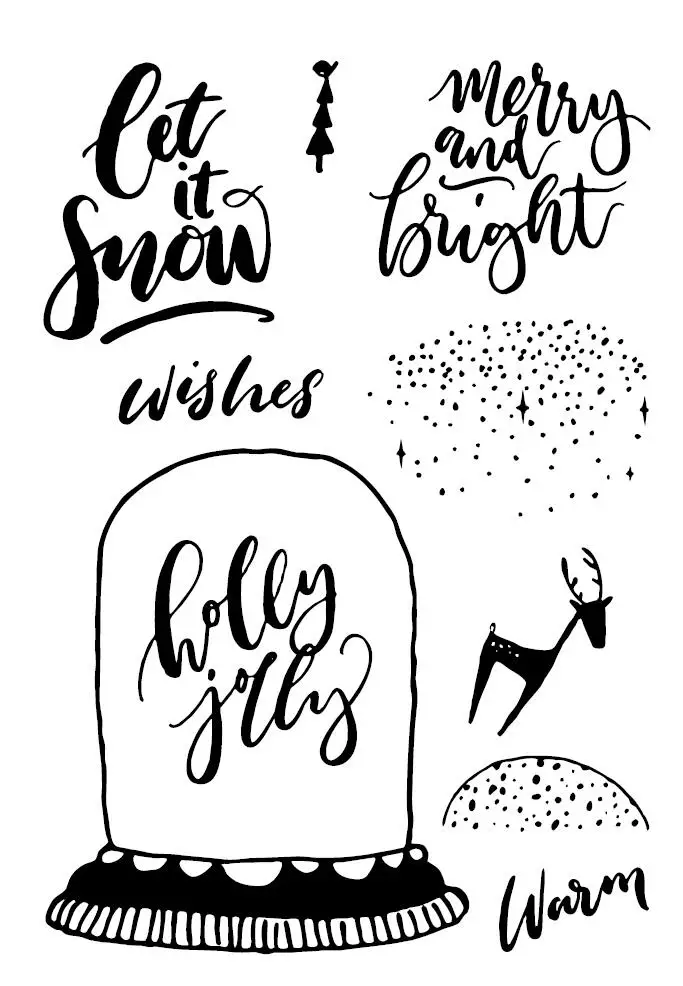 let
it
Snow
merry
and
bright
wishes
holly
jolly
Warm